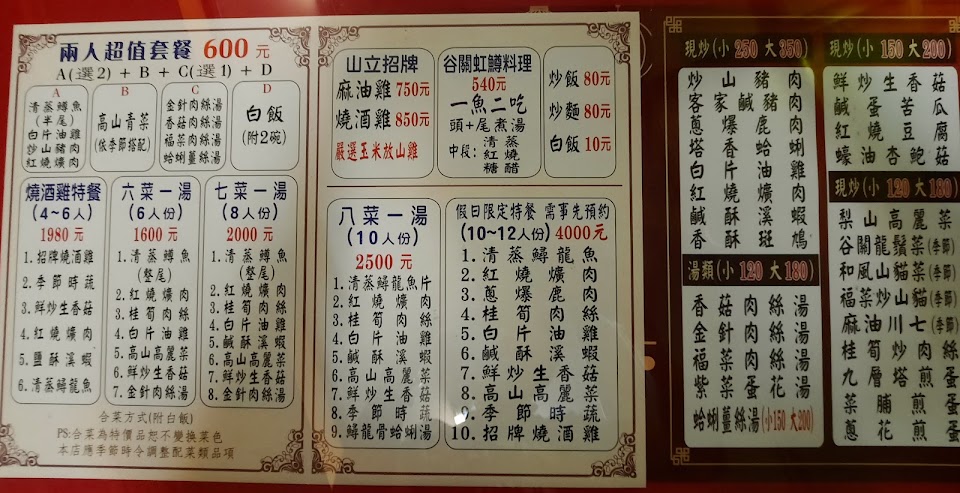 兩人超值套餐 600 元
A(選2) + B + C(選1) + D
A
清蒸鱒魚
(半尾)
白片油雞
炒山豬肉
紅燒爌肉
B
高山青菜
(依季節搭配)
C
金針肉絲湯
香菇肉絲湯
福菜肉絲湯
蛤蜊薑絲湯
D
白飯
(附2碗)
燒酒雞特餐
(4~6人)
1980 元
1.招牌燒酒雞
2.季節時蔬
3.鮮炒生香菇
4.紅燒爌肉
5.鹽酥溪蝦
6.清蒸鱘龍魚
六菜一湯
(6人份)
1600 元
1.清蒸鱒魚
(整尾)
2.紅燒爌肉
3.桂筍肉絲
4.白片油雞
5.高山高麗菜
6.鮮炒生香菇
7.金針肉絲湯
七菜一湯
(8人份)
2000 元
1.清蒸鱒魚
(整尾)
2.紅燒爌肉
3.桂筍肉絲
4.白片油雞
5.鹹酥溪蝦
6.高山高麗菜
7.鮮炒生香菇
8.金針肉絲湯
合菜方式(附白飯)
PS:合菜為特價品恕不變換菜色
本店應季節時令調整配菜類品項
山立招牌
麻油雞 750元
燒酒雞 850元
嚴選玉米放山雞
谷關虹鱒料理
540元
一魚二吃
頭+尾煮湯
中段:清蒸
紅燒
糖醋
炒飯 80元
炒麵 80元
白飯 10元
八菜一湯
(10人份)
2500 元
1.清蒸鱘龍魚片
2.紅燒爌肉
3.桂筍肉絲
4.白片油雞
5.鹹酥溪蝦
6.高山高麗菜
7.鮮炒生香菇
8.季節時蔬
9.鱘龍骨蛤蜊湯
假日限定特餐 需事先預約
(10~12人份) 4000元
1.清蒸鱘龍魚
2.紅燒爌肉
3.蔥爆鹿肉
4.桂筍肉絲
5.白片油雞
6.鹹酥溪蝦
7.鮮炒生香菇
8.高山高麗菜
9.季節時蔬
10.招牌燒酒雞
現炒(小 250 大 350)
炒山豬肉
客家鹹豬肉
蔥爆鹿肉
塔香蛤蜊
白片油雞
紅燒爌肉
鹹酥溪蝦
香酥斑鳩
湯類(小 120 大 180)
香菇肉絲湯
金針肉絲湯
福菜肉絲湯
紫菜蛋花湯
蛤蜊薑絲湯(小150 大200)
現炒(小 150 大 200)
鮮炒生香菇
鹹蛋苦瓜
紅燒豆腐
蠔油杏鮑菇
現炒(小 120 大 180)
梨山高麗菜
谷關龍鬚菜(季節)
和風山貓菜(季節)
福菜炒山貓(季節)
麻油川七(季節)
桂筍炒肉絲
九層塔煎蛋
菜脯煎蛋
蔥花煎蛋